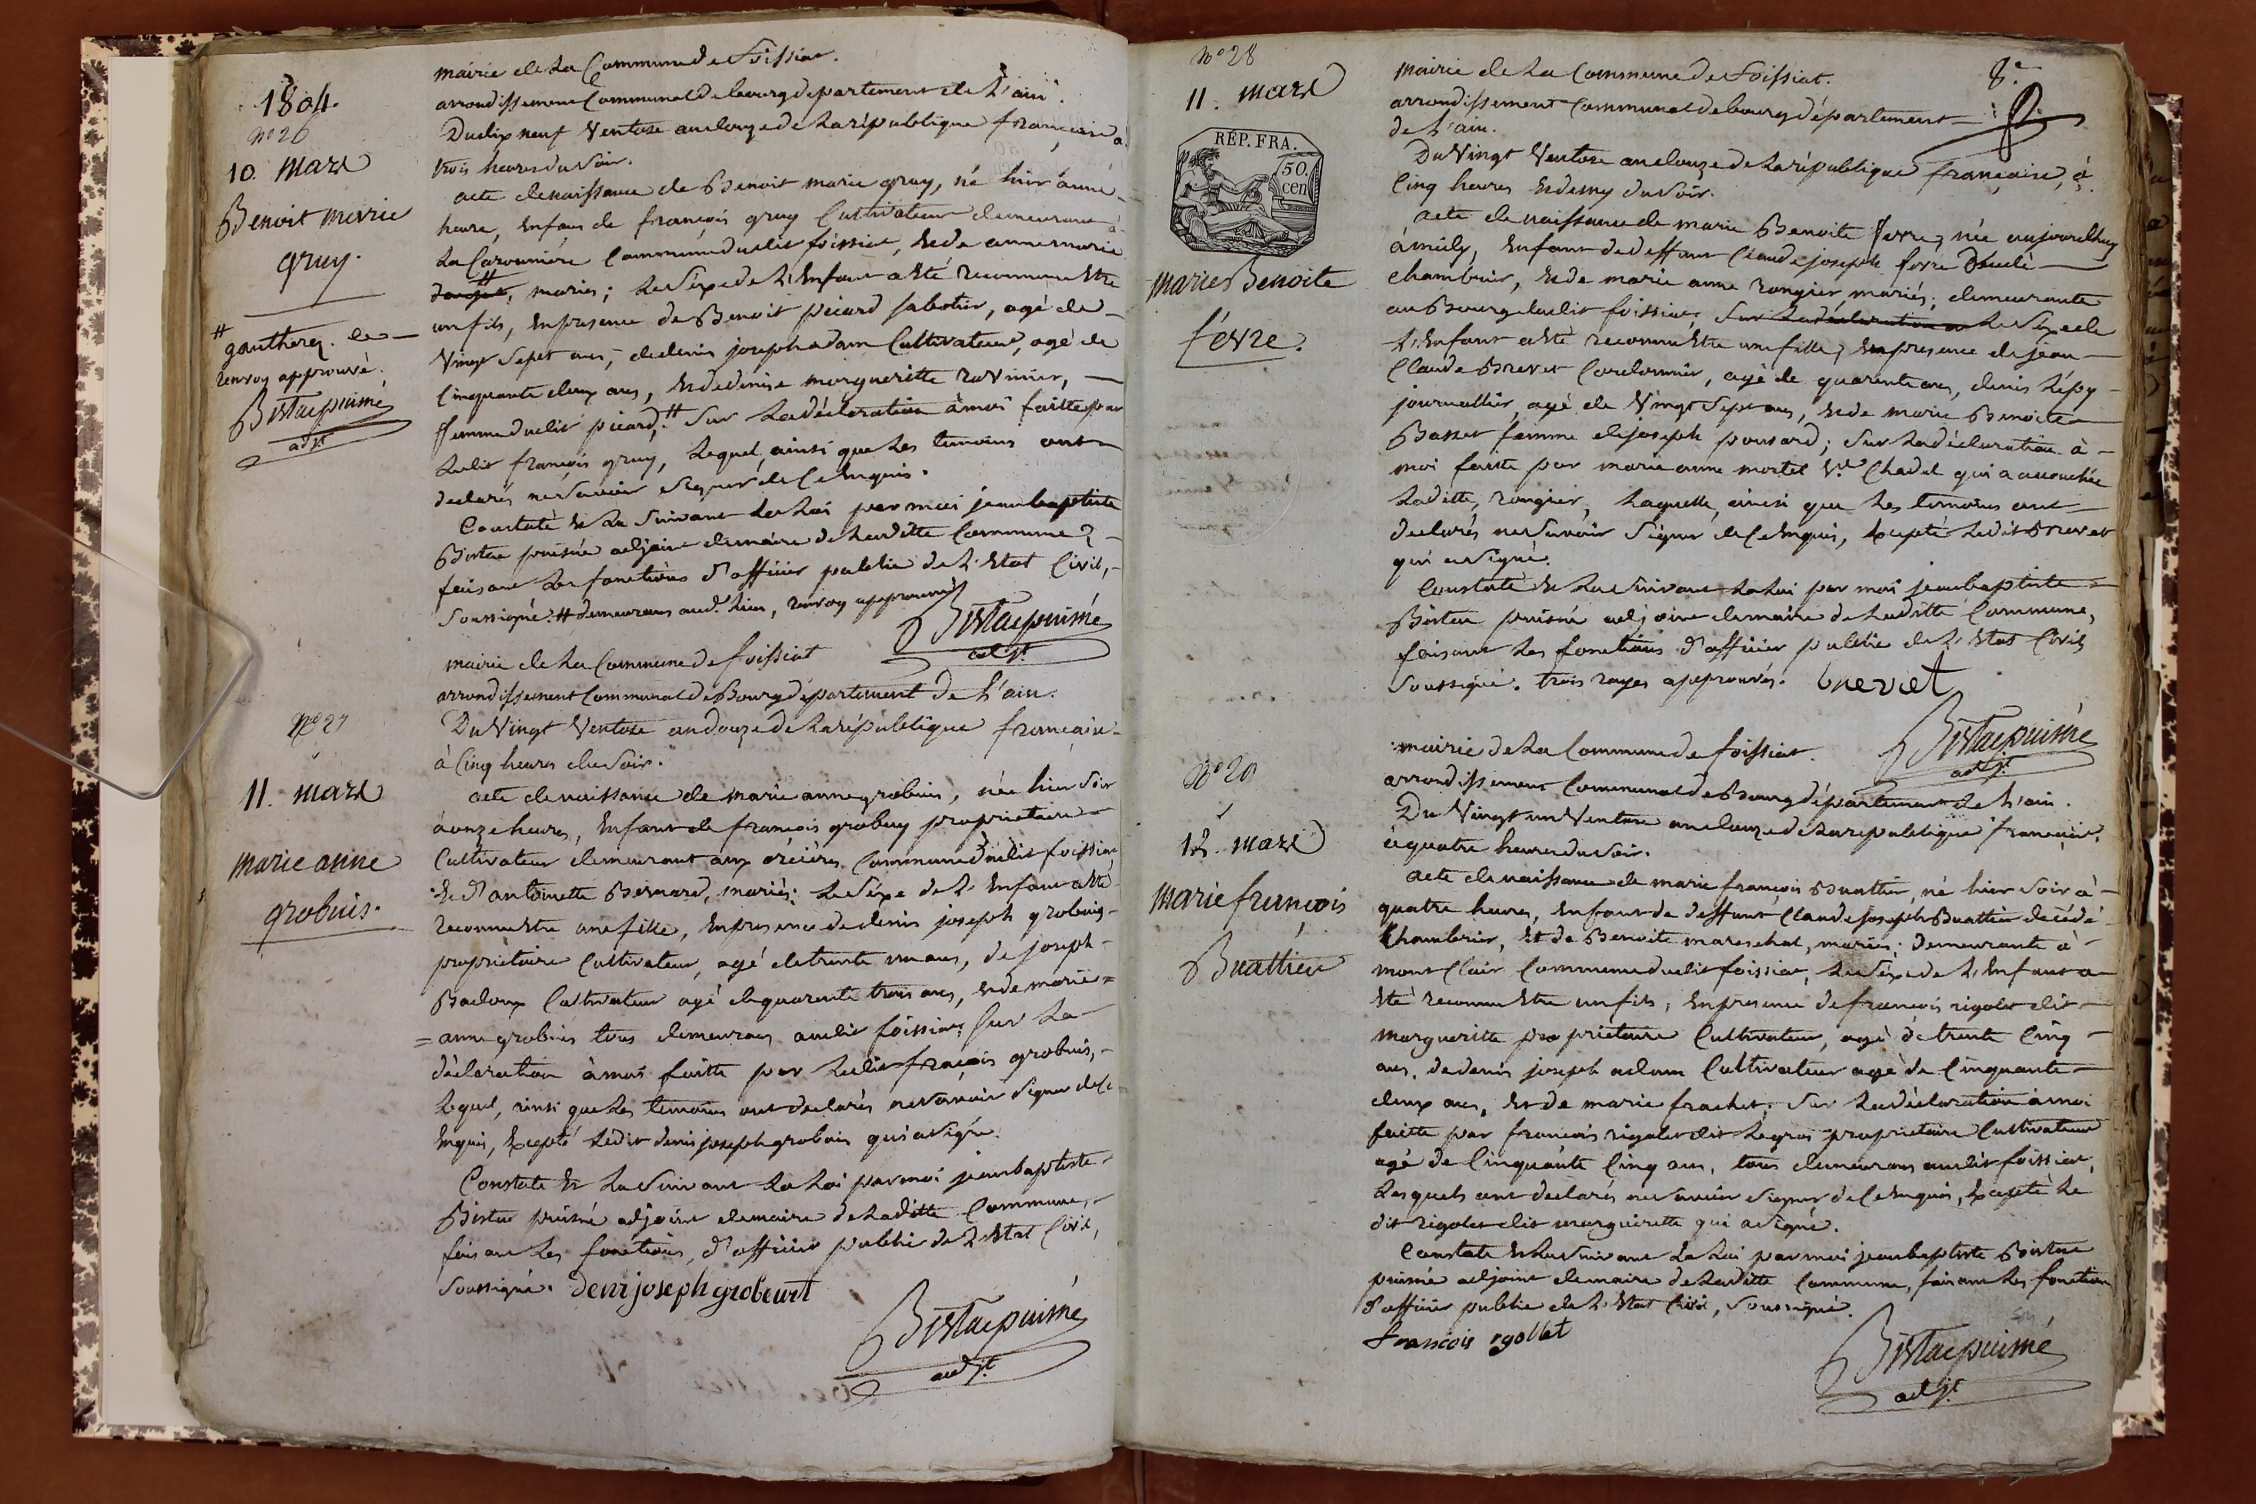 1804.
n° 26
10. mars
Benoit marie
gruy.
# gautherez. le
renvoy approuvé.
Bistac puisné
adjt
mairie de La Commune de foissiat.
arrondissement Communal de bourg département de L'ain.
Du dix neuf Ventose an douze de La république française à
trois heures du soir.
acte de naissance de Benoit marie gruy, né hier à une
heure, Enfant de françois gruy Cultivateur demeurant à
La Commune dudit foissiat, Et de anne marie
#, mariés; Le Séxe de L'Enfant a été reconnu Etre
un fils, En presence de Benoit picard sabotier, agé de
Vingt Sept ans, de denis joseph adam Cultivateur, agé de
Cinquante deux ans, Et de denise margueritte
femme dudit picard, # Sur La déclaration à moi faitte par
Ledit françois gruy, Lequel, ainsi que Les temoins ont
declarés ne Savoir Signer de Ce Enquis.
Constaté Et La Suivant La Loi par moi jean baptiste
Bistac puisné adjoint de maire de Laditte Commune,
faisant Les fonctions d'officier public de L'Etat Civil,
Soussigné. # demeurans aud. Lieu, renvoy approuvé
Bistac puisné
adjt
n° 27
11. mars
marie anne
grobuis.
mairie de La Commune de foissiat
arrondissement Communal de Bourg département De L'ain.
Du Vingt Ventose an douze de La république française
à Cinq heures du Soir.
acte de naissance de marie anne grobuis, née hier Soir
à onze heures, Enfant de françois grobuy proprietaire
Cultivateur demeurant aux Commune dudit foissiat
Et d'antoinette Bernard, mariés; Le Séxe de L'Enfant a été
reconnu Etre une fille, En presence de denis joseph grobuis
proprietaire Cultivateur, agé de trente un ans, de joseph
Badoux Cultivateur agé de quarente trois ans, Et de marie=
=anne grobuis tous demeurans audit foissiat; Sur La
déclaration à moi faitte par Ledit fraçois grobuis,
Lequel, ainsi que Les temoins ont declarés ne Savoir Signer de Ce
Enquis, Excepté Ledit denis joseph grobuis qui a Signé.
Constaté Et La Suivant La Loi par moi jean baptiste
Bistac puisné adjoint de maire de Laditte Commune,
faisant Les fonctions, d'officier public de L'Etat Civil,
Soussigné. denijoseph grobeuit
Bistac puisné
adjt
n° 28
11. mars
RÉP. FRA.
50.
cen
marie Benoite
févre.
8e
mairie de La Commune de foissiat.
arrondissement Communal de bourg département
de L'ain.
Du Vingt Ventose an douze de La république française, à
Cinq heures Et demy du Soir.
acte de naissance de marie Benoite fevre, née aujourdhuy
à midy, Enfant de deffunt Claude joseph fevre Décédé
chambrier, Et de marie anne rongier, mariés; demeurante
au Bourg dudit foissiat, Sur La déclaration Le Séxe de
L'Enfant a été reconnu Etre une fille, En presence de jean
Claude Brevet Cordonnier, agé de quarente ans, denis Lépy
journallier, agé de Vingt Sept ans, Et de marie Benoite
Basset femme de joseph ponsard; Sur La déclaration à
moi faitte par marie anne mortel Ve. Chadel qui a accouchée
Laditte, rongier, Laquelle, ainsi que Les temoins ont
declarés ne Savoir Signer de Ce Enquis, Excepté Ledit Brevet
qui a Signé.
Constaté Et La Suivant La Loi par moi jean baptiste
Bistac puisné adjoint de maire de Laditte Commune,
faisant Les fonctions d'officier public de L'Etat Civil
Soussigné. trois rayés approuvés. brevet
Bistac puisné
adjt
n° 29
12. mars
marie françois
Buattier
mairie de La Commune de foissiat.
arrondissement Communal de Bourg département de L'ain.
Du Vingt un Ventose an douze de La republique française
à quatre heures du Soir.
acte de naissance de marie françois Buattier, né hier Soir à
quatre heures, Enfant de deffunt Claude joseph Buattier decédé
chambrier, Et de Benoite mareschal, mariés; demeurante à
mont Clair Commune dudit foissiat, Le Séxe de L'Enfant a
été reconnu Etre un fils, En presence de françois rigolet dit
margueritte proprietaire Cultivateur, agé de trente Cinq
ans, de denis joseph adam Cultivateur agé de Cinquante
deux ans, Et de marie frachet; Sur La déclaration à moi
faitte par françois rigolet dit Legros proprietaire Cultivateur
agé de Cinquante Cinq ans, tous demeurans audit foissiat,
Lesquels ont declarés ne Savoir Signer de Ce Enquis, Excepté Le
dit rigolet dit margueritte qui a Signé.
Constaté Et La Suivant La Loi par moi jean baptiste Bistac
puisné adjoint de maire de Laditte Commune, faisant Les fonction
d'officier public de L'Etat Civil, Soussigné.
francois rgollet
Bistac puisné
adjt